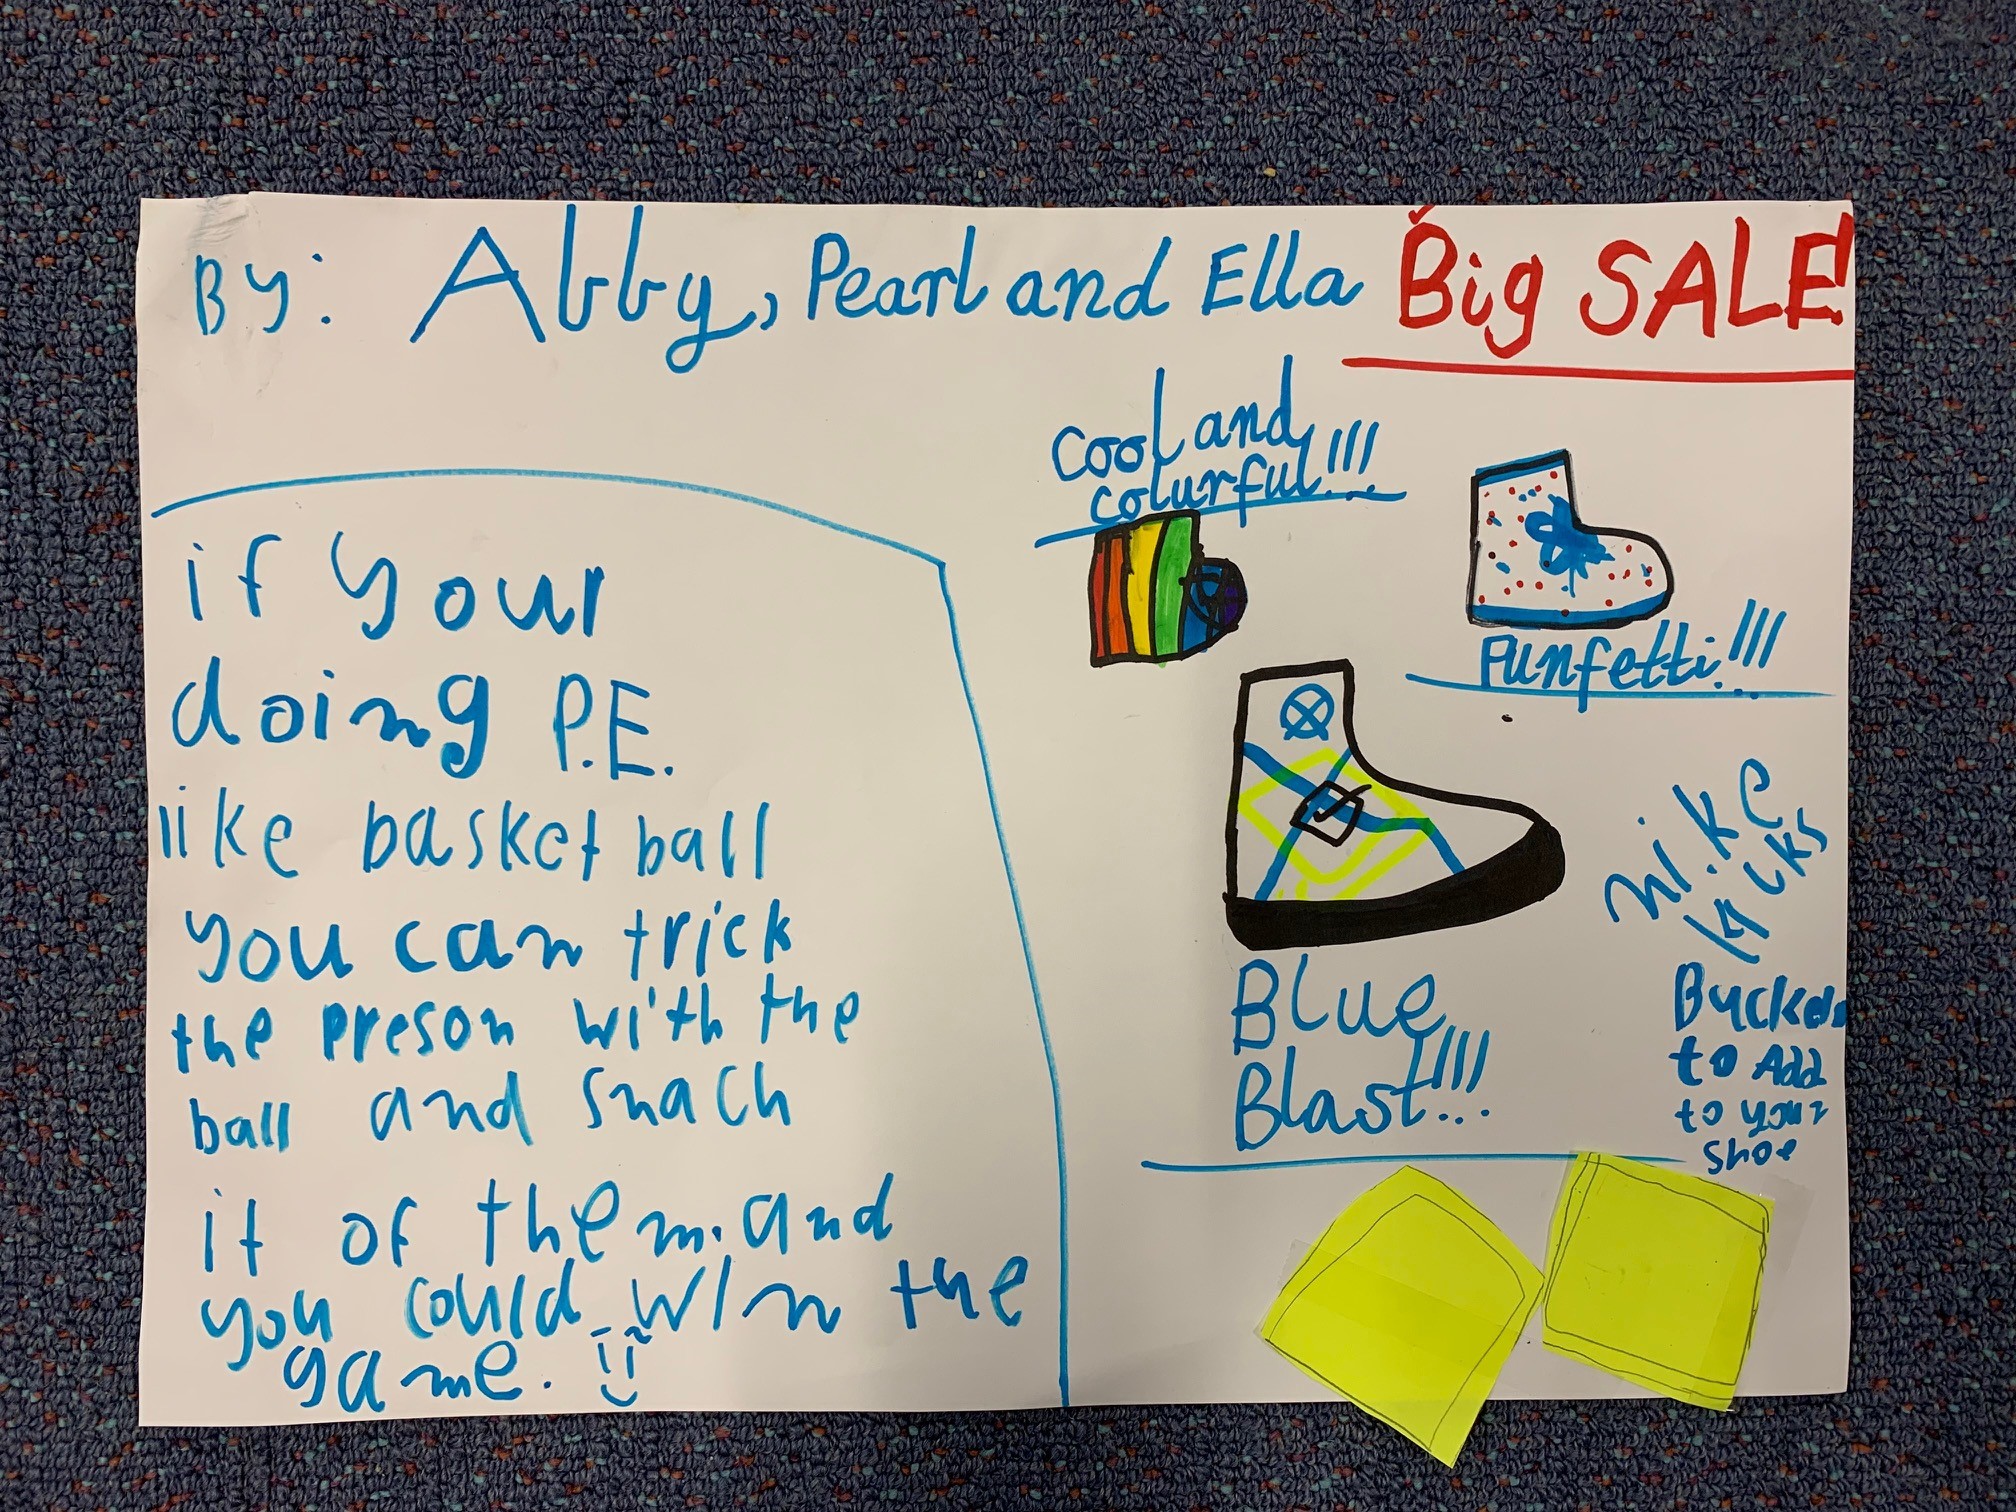 By: Abby, Pearl and Ella
Big SALE!
cool and
colurful!!!
Funfetti!!!
Blue
Blast!!!
nike
kicks
Buckets
to Add
to your
shoe
if your
doing P.E.
like basket ball
you can trick
the preson with the
ball and snach
it of them. and
you could win the
game.